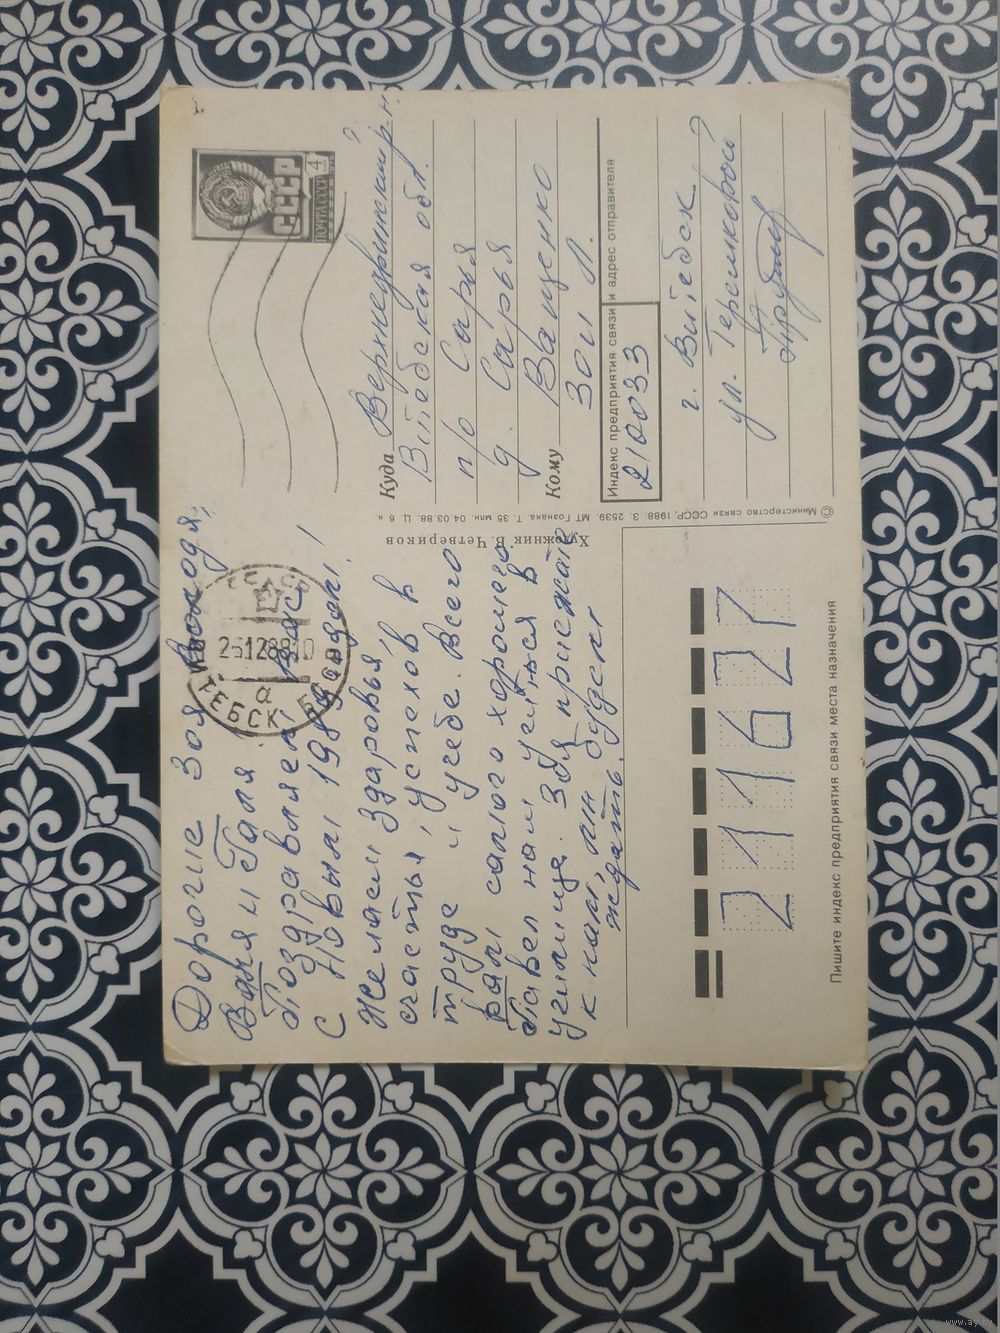 Дорогие Зоя, Володя,
Валя и Галя!
Поздравляем Вас
с Новым 1989 годом!
Желаем здоровья,
счастья, успехов в
труде и учебе. Всего
вам самого хорошего.
Павел нам учится в
училище. Зоя приезжайте
к нам, мы будем
ждать.
СССР
ПОЧТА СССР
4
ВИТЕБСК
а
25128810
Куда Верхнедвинский р-н
Витебская обл.
п/о Сарья
д. Сарья
Кому Ващенко
Зои Л.
Индекс предприятия связи и адрес отправителя
210033
г. Витебск
ул. Терешковой
Художник В. Четвериков
© Министерство связи СССР, 1988. З. 2539. МТ Гознака. Т. 35 млн. 04.03.88. Ц. 6 к.
211627
Пишите индекс предприятия связи места назначения
www.ay.by